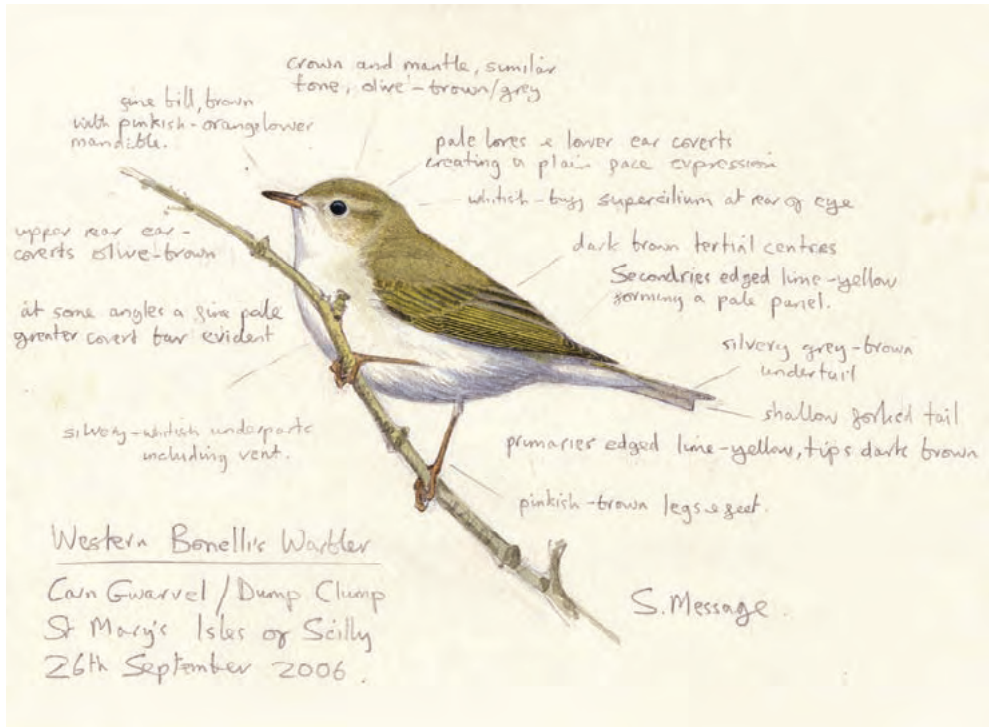 crown and mantle, similar
tone, olive-brown/grey
fine bill, brown
with pinkish-orange lower
mandible.
pale lores & lower ear coverts
creating a plain face expression
whitish-buff supercilium at rear of eye
upper rear ear-
coverts olive-brown
dark brown tertial centres
Secondries edged lime-yellow
forming a pale panel.
at some angles a fine pale
greater covert bar evident
silvery grey-brown
undertail
shallow forked tail
silvery-whitish underparts
including vent.
primaries edged lime-yellow, tips dark brown
pinkish-brown legs & feet.
Western Bonelli's Warbler
Carn Gwarvel / Dump Clump
St Mary's Isles of Scilly
26th September 2006.
S. Message.